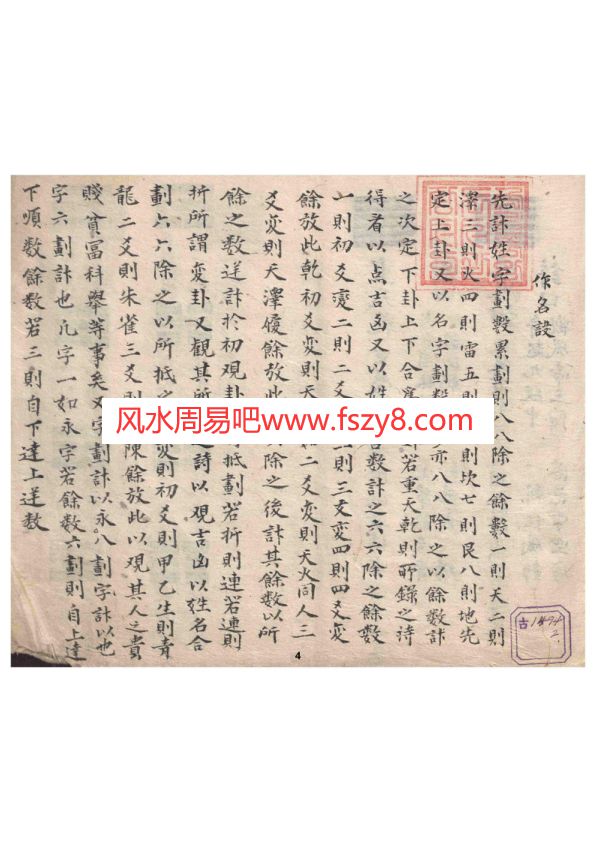 作名設
先計姓字劃數累劃則八八除之餘數一則天二則
澤三則火四則雷五則 則坎七則艮八則地先
定上卦又以名字劃數 亦八八除之以餘數計
之次定下卦上下合 若重天乾則所錄之詩
得者以点吉凶又以姓 名數計之六六除之餘數
一則初爻變二則二爻 三則三爻変四則四爻変
餘放此乾初爻変則天 二爻変則天火同人三
爻変則天澤履餘放此 除之後計其餘數以所
餘之數送計於初覌卦 抵劃若折則連若連則
折所謂変卦又觀其所 之詩以观吉凶以姓名合
劃六六除之以所抵之 変則初爻則甲乙生則青
龍二爻則朱雀三爻則 陳餘放此以观其人之貴
賤貧富科舉等事矣又字劃計以永八劃字計以也
字六劃計也凡字一如永字若餘數六劃則自上達
下順數餘數若三則自下達上送數
风水周易吧www.fszy8.com
古1474
2
4